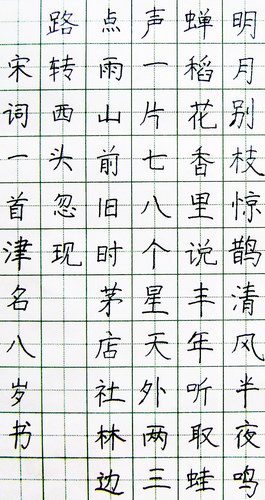 明月别枝惊鹊清风半夜鸣
蝉稻花香里说丰年听取蛙
声一片七八个星天外两三
点雨山前旧时茅店社林边
路转西头忽现
宋词一首津名八岁书